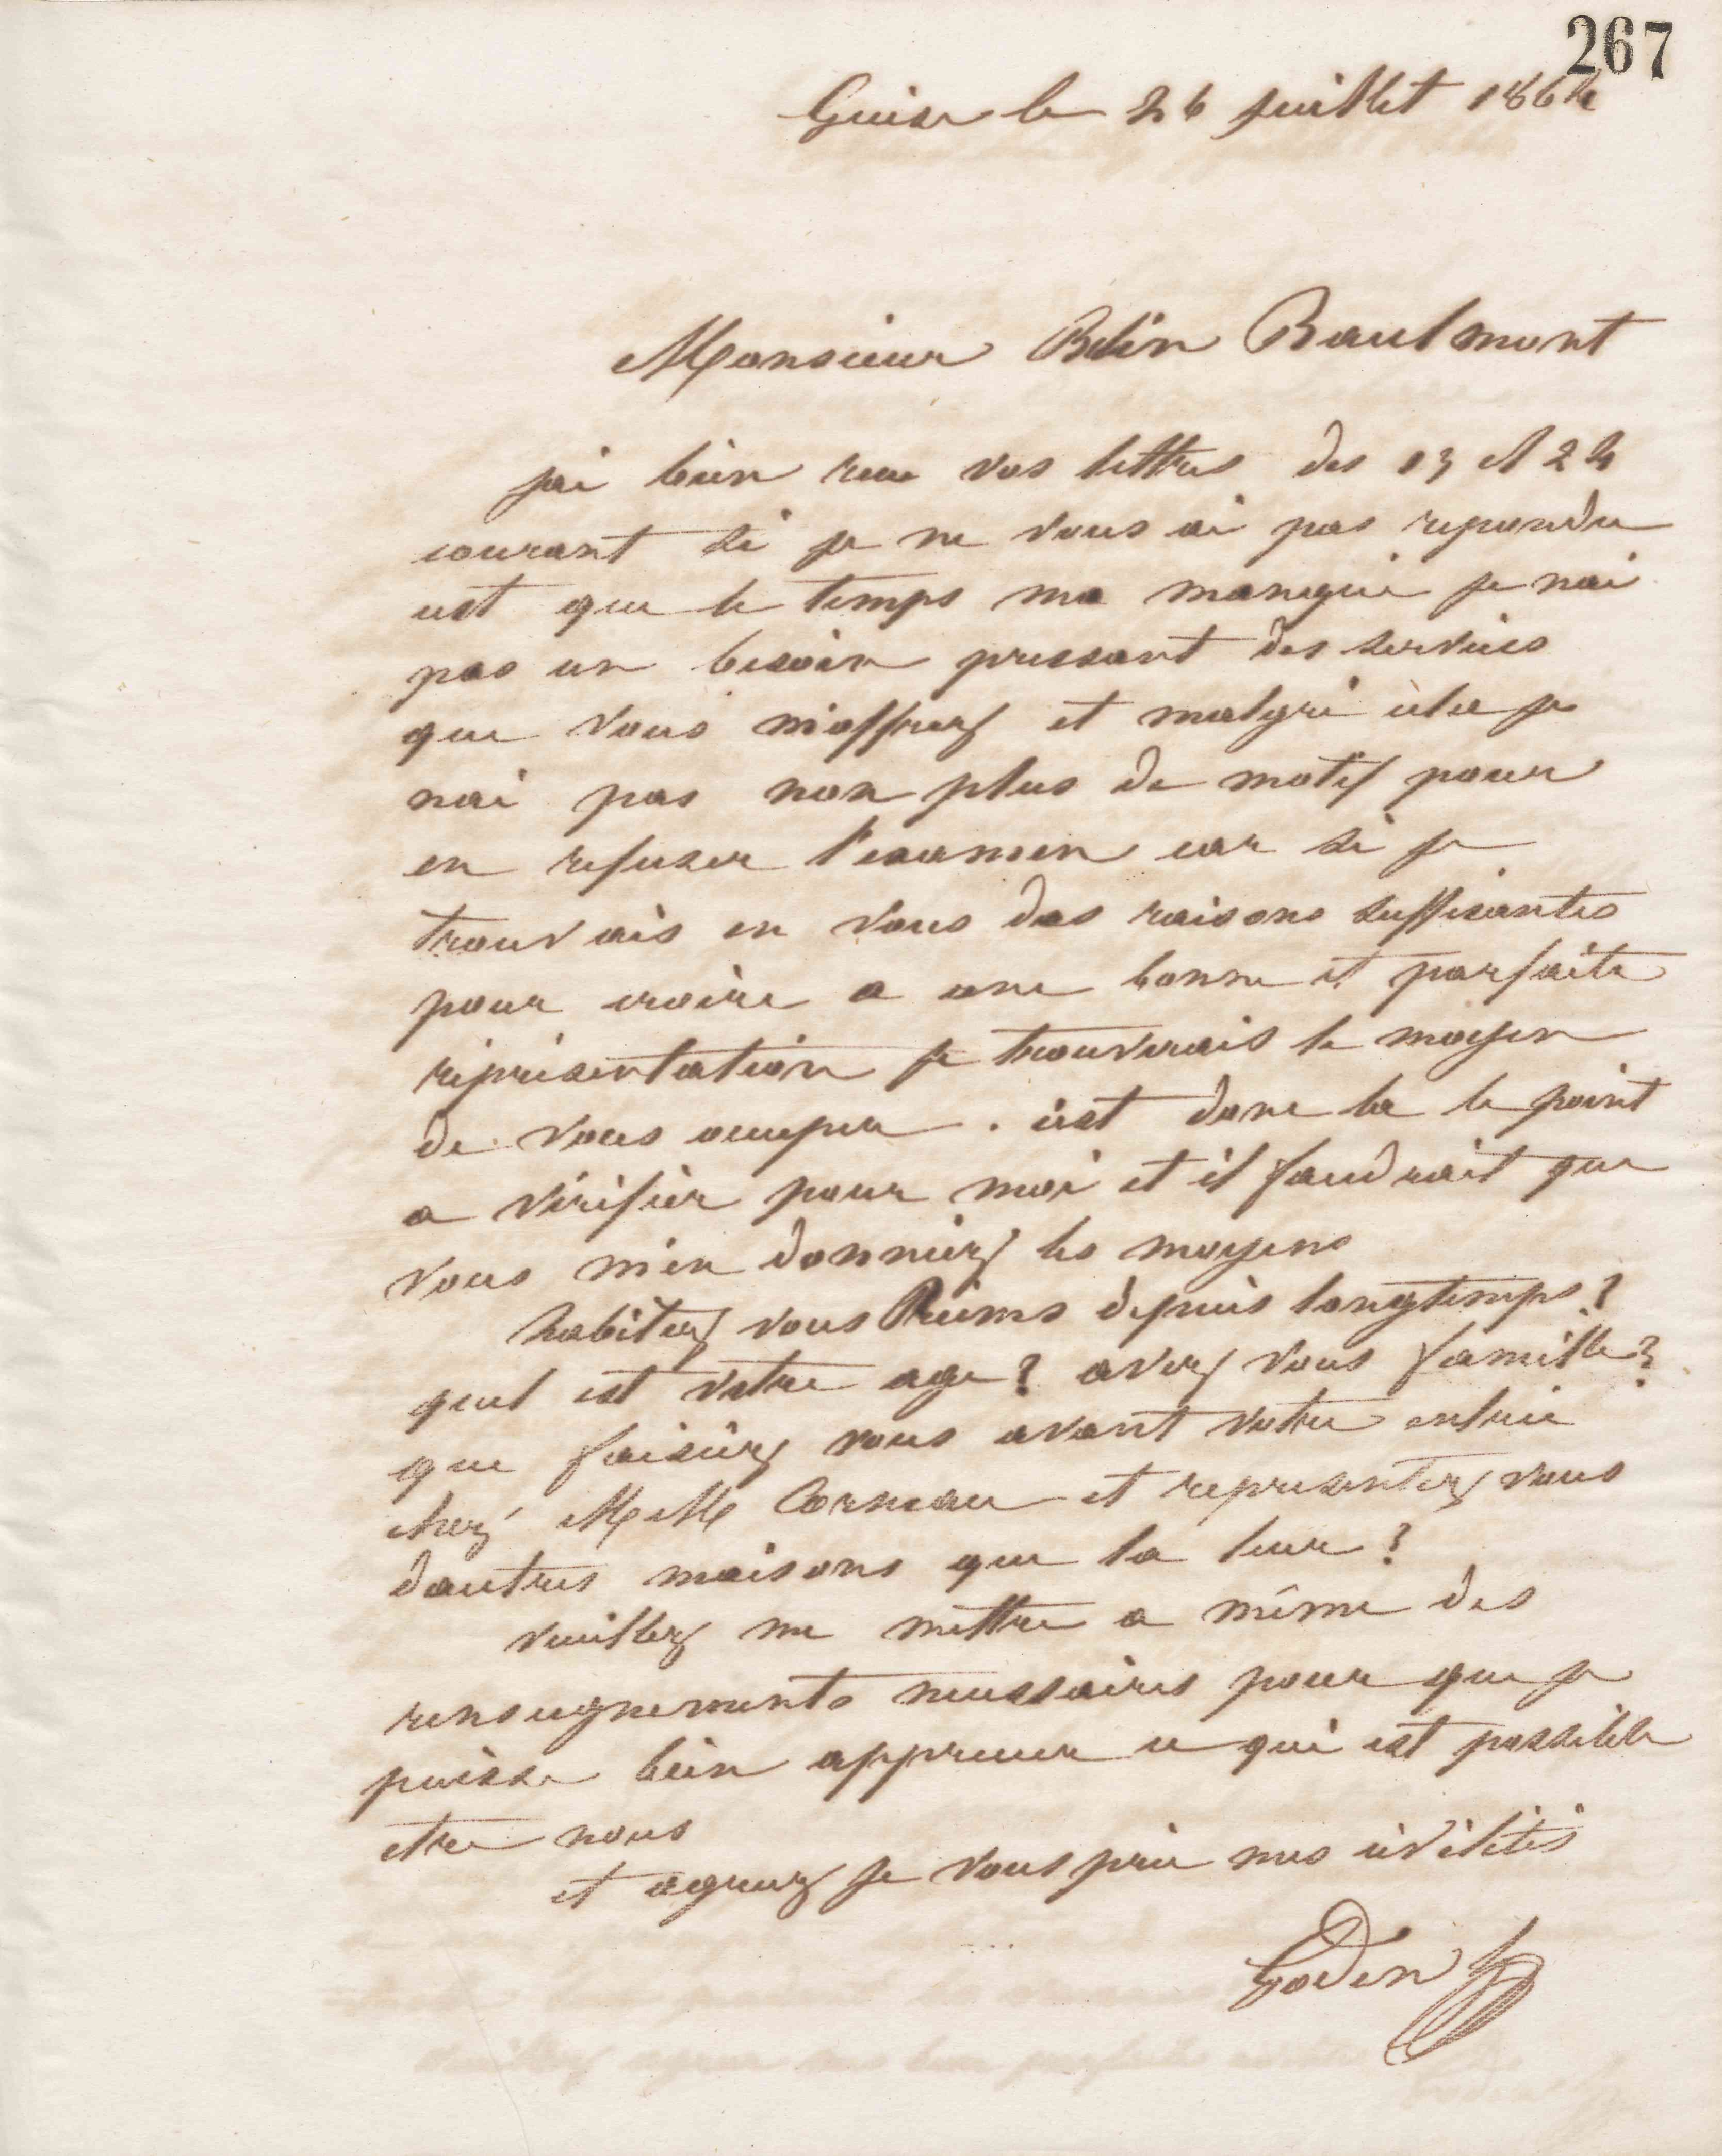 267
Guise le 26 juillet 1864
Monsieur Belin Baulmont
jai bien recu vos lettres des 13 et 24
courant si je ne vous ai pas repondu
cest que le temps ma manqué je nai
pas un besoin pressant des services
que vous m'offrez et malgré cela je
nai pas non plus de motif pour
en refuser l'examen car si je
trouvais en vous des raisons suffisantes
pour croire a une bonne et parfaite
représentation je trouverais le moyen
de vous occuper . cest donc la le point
a vérifier pour moi et il faudrait que
vous m'en donniez les moyens
habitez vous Reims depuis longtemps ?
quel est votre age ? avez vous famille ?
que faisiez vous avant votre entrée
chez MM Corneau et representez vous
dautres maisons que la leur ?
veuillez me mettre a même des
renseignements necessaires pour que je
puisse bien apprecier ce qui est possible
etre nous
et agreez je vous prie mes civilités
Godin